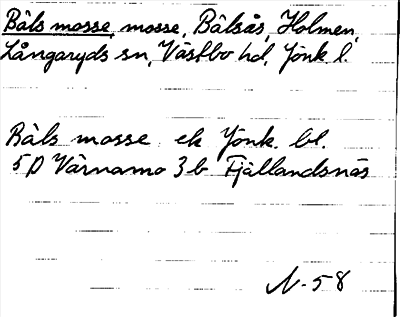 Båls mosse, mosse, Bålsås, Holmen,
Långaryds sn, Västbo hd, Jönk. l.
Båls mosse ek Jönk. bl.
5D Värnamo 3b Fjällandsnäs
N-58